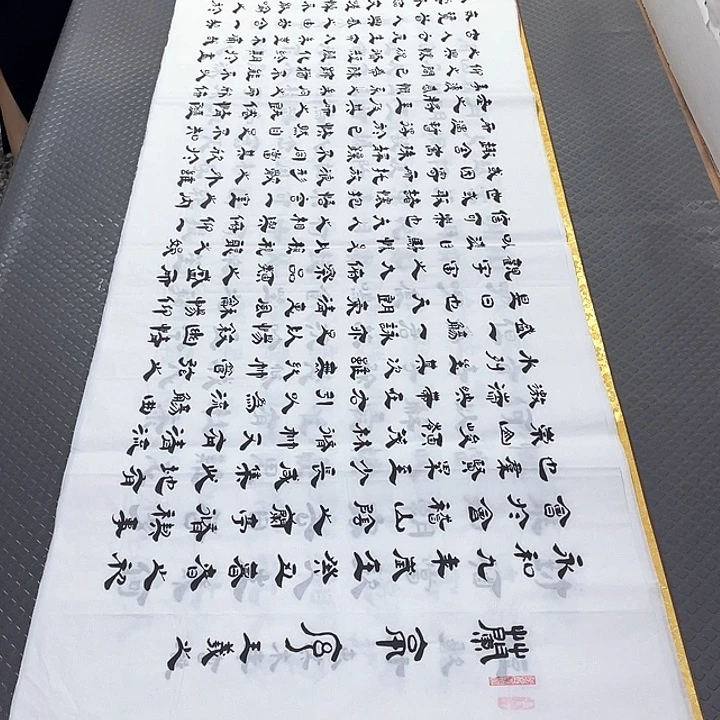 蘭亭序 王羲之
永和九年歲在癸丑暮春之初
會於會稽山陰之蘭亭脩禊事
也羣賢畢至少長咸集此地有
崇山峻領茂林脩竹又有清流
激湍映帶左右引以為流觴曲
水列坐其次雖無絲竹管弦之
盛一觴一詠亦足以暢敘幽情
是日也天朗氣清惠風和暢仰
觀宇宙之大俯察品類之盛所
以遊目騁懷足以極視聽之娛
信可樂也夫人之相與俯仰一
世或取諸懷抱悟言一室之內
或因寄所託放浪形骸之外雖
趣舍萬殊靜躁不同當其欣於
所遇暫得於己快然自足不知
老之將至及其所之既倦情隨
事遷感慨係之矣向之所欣俛
仰之間已為陳迹猶不能不以
之興懷況脩短隨化終期於盡